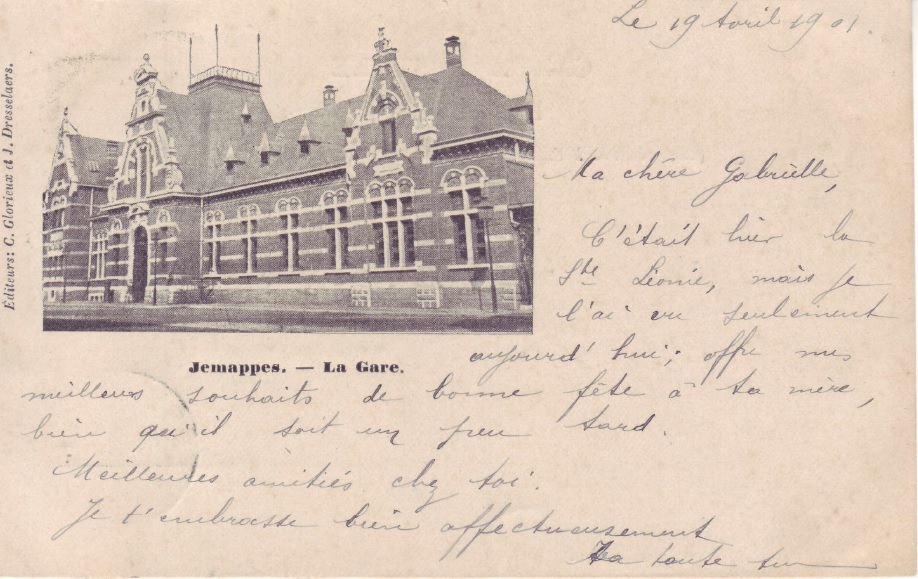 Le 19 Avril 1901.
Éditeurs: C. Glorieux et J. Dresselaers.
Ma chère Gabrielle,
C'était hier la
Ste Léonie, mais je
l'ai vu seulement
Jemappes. — La Gare.
aujourd'hui; offre mes
meilleurs souhaits de bonne fête à ta mère,
bien qu'il soit un peu tard.
Meilleures amitiés chez toi.
Je t'embrasse bien affectueusement
Ta toute